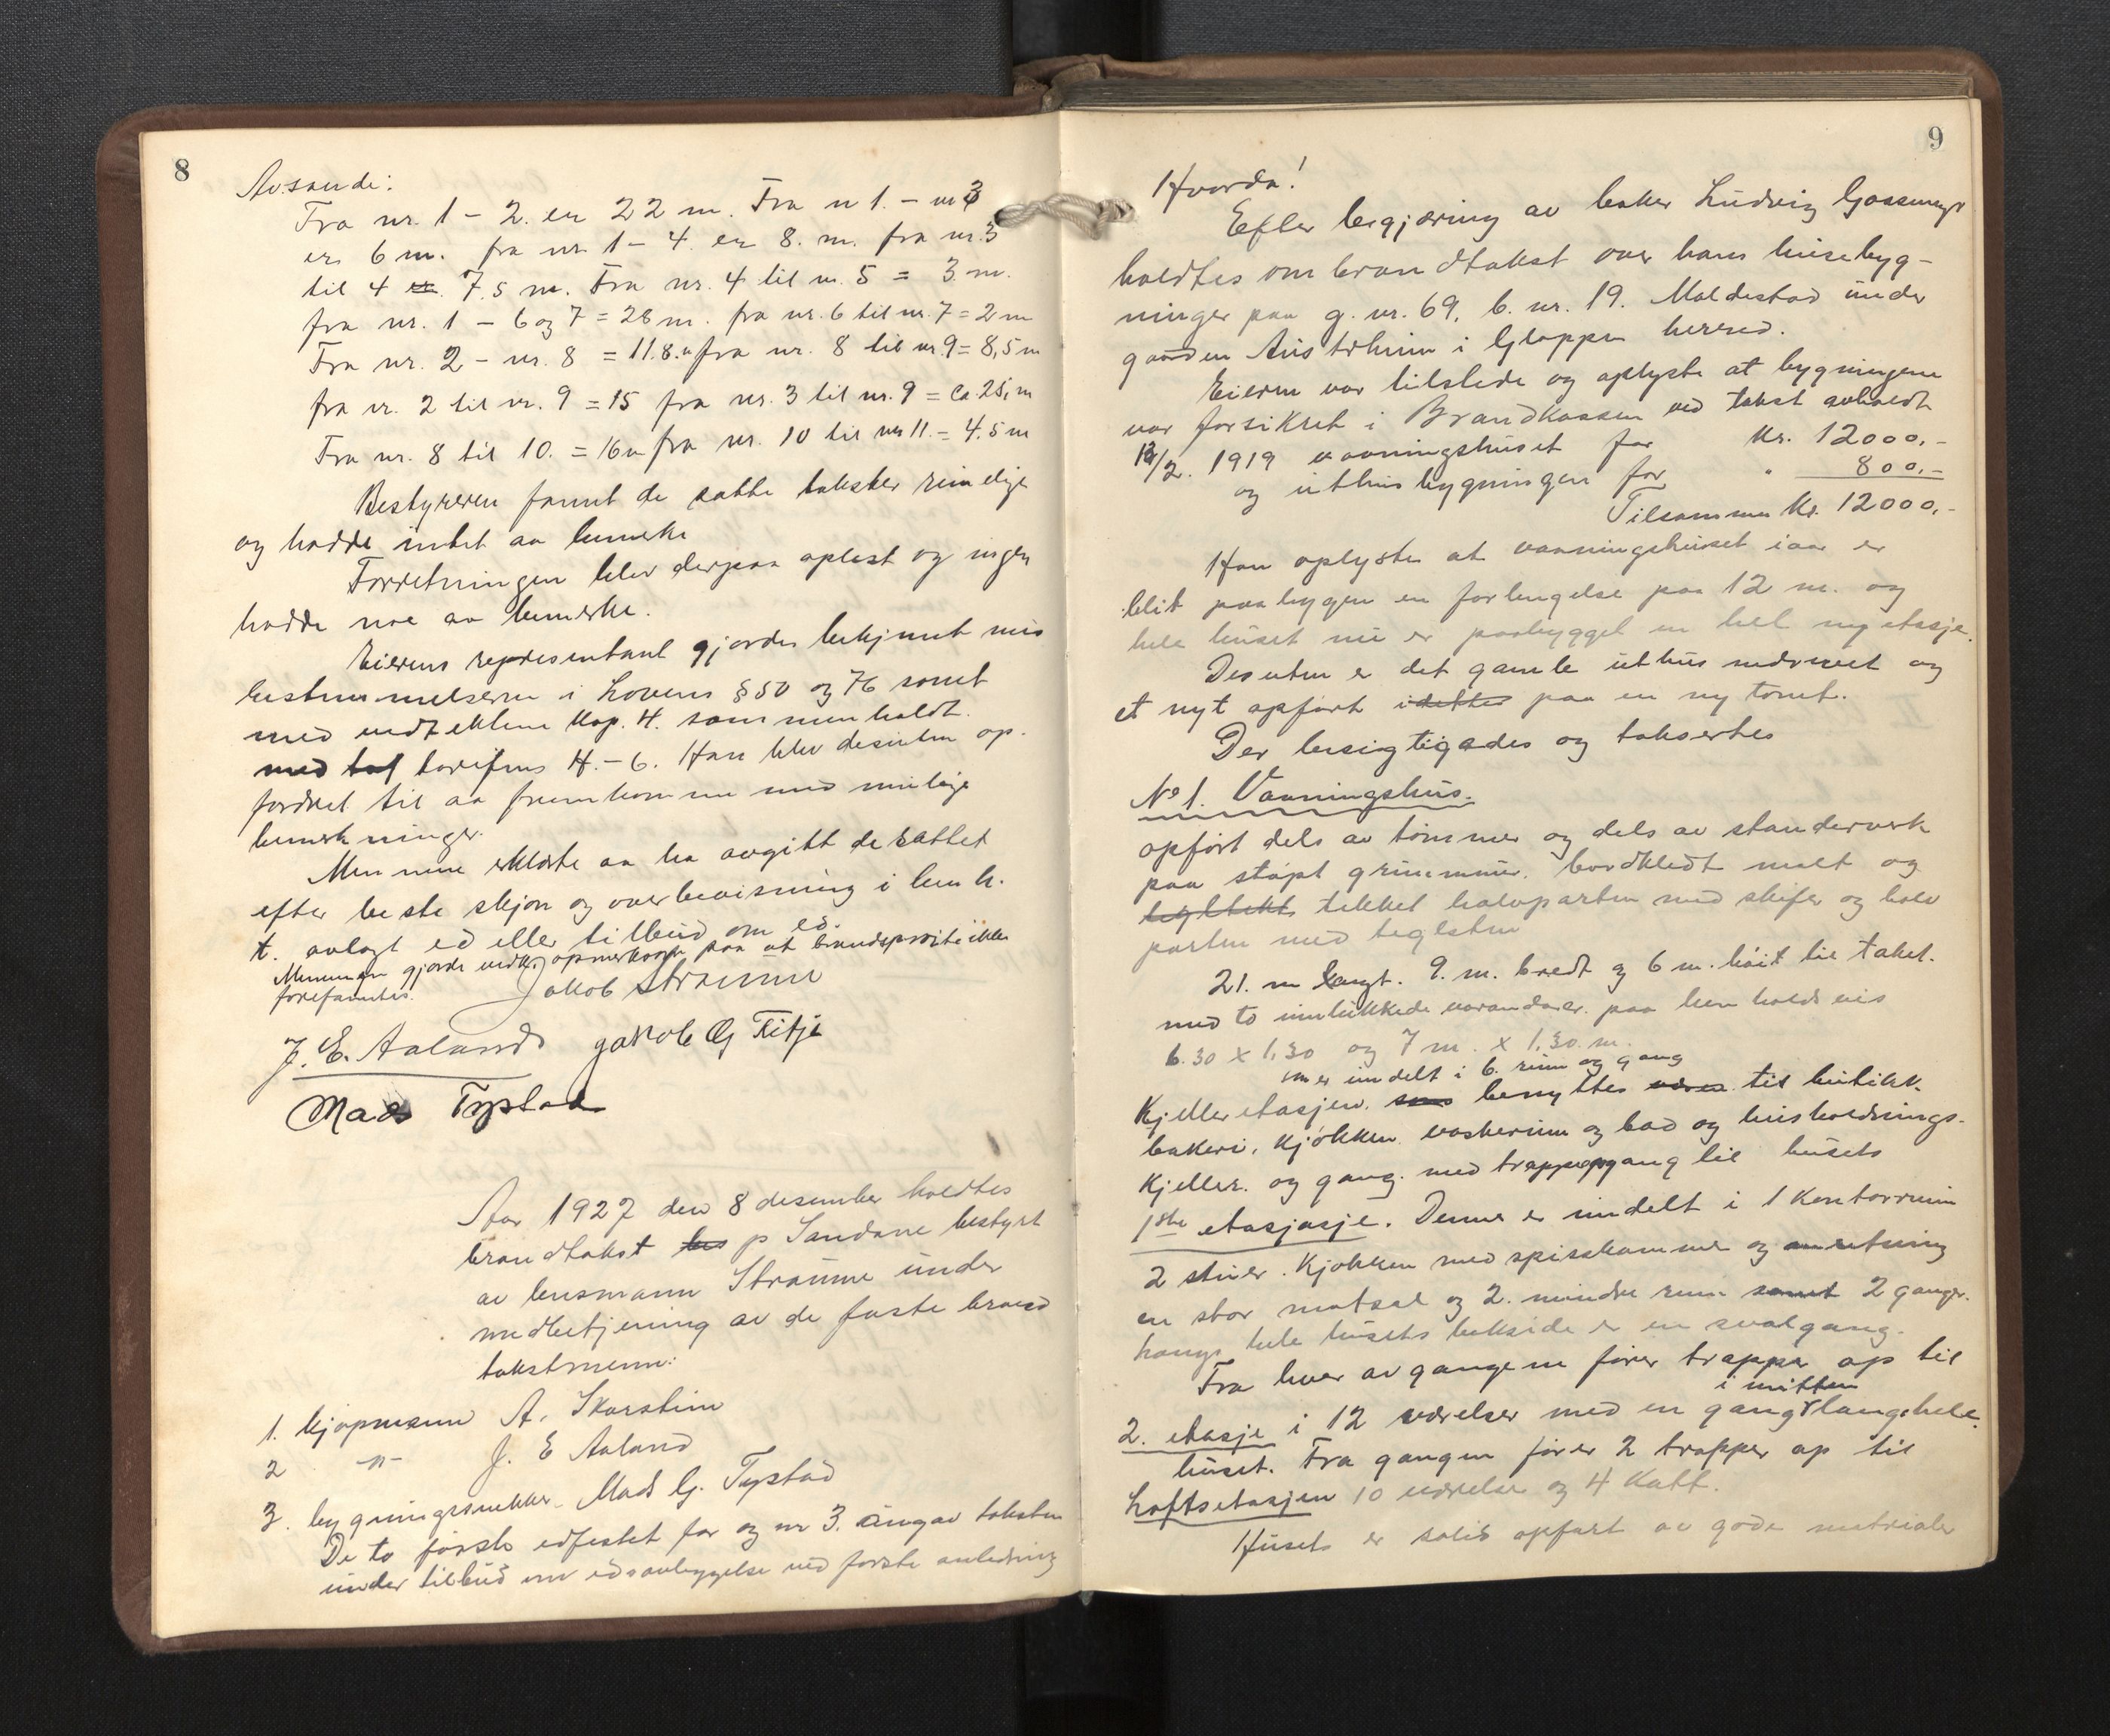 8
Avstande:
Fra nr. 1 - 2. er 22 m. Fra n 1. - nr 3
er 6 m. fra nr. 1 - 4. er 8. m. fra nr. 3
til 4 er. 7.5 m. Fra nr. 4 til nr. 5 = 3 m.
fra nr. 1 - 6 og 7 = 28 m. fra nr. 6 til nr. 7 = 2 m
Fra nr. 2 - nr. 8 = 11.8. m fra nr. 8 til nr. 9 = 8,5 m
fra nr. 2 til nr. 9 = 15 fra nr. 3 til nr. 9 = ca. 25, m
Fra nr. 8 til 10. = 16 m fra nr. 10 til nr 11. = 4.5 m
Bestyreren fannt de satte takster rimelige
og hadde intet aa bemerke
Forretningen blev derpaa oplest og ingen
hadde noe aa bemerke.
Eierens representant gjordes bekjennt med
bestemmelserne i Lovens § 50 og 76 samt
med vedtektene Kap. 4. sammenholdt
med taf tarifens H. - 6. Han blev desuten op-
fordret til aa fremkomme med mulige
bemerkninger.
Mennene erklærte aa ha avgitt de sattet
efter beste skjøn og overbevisning i henh.
t. avlagt ed eller tilbud om ed.
Mennene gjorde vedk. opmerksom paa at brandsprøite ikke
forefantes.
Jakob Straume
J. E. Aaland Jakob G Fitje
Mads Tystad
Aar 1927 den 8 desember holdtes
brandtakst hos p Sandane bestyrt
av lensmann Straume under
medbetjening av de faste brand
takstmenn:
1. kjøpmann A. Skarstein
2 -"- J. E Aaland
3. bygningssnekker Mads G. Tystad
De to første edfestet før og nr 3. avgav taksten
under tilbud om edsavleggelse ved første anledning
9
Hvorda!
Efter begjæring av baker Ludvig Gossmyr
holdtes ombrandtakst over hans husebyg-
ninger paa g. nr. 69, b. nr. 19. Moldestad under
gaarden Austrheim i Gloppen herred.
Eieren var tilstede og oplyste at bygningene
var forsikret i Brandkassen ved takst avholdt
12/2. 1919 vaaningshuset for Kr. 12000.-
og uthusbygningen for " 800.-
Tilsammen Kr. 12000.-
Han oplyste at vaaningshuset iaar er
blit paabygget en forlengelse paa 12 m. og
hele huset nu er paabygget en hel ny etasje.
Desuten er det gamle uthus nedrevet og
et nyt opført idettes paa en ny tomt.
Der besigtigedes og taksertes
No 1. Vaaningshus.
opført dels av tømmer og dels av standerverk
paa støpt grunnmur. bordkledt malt og
tegltekt tekket halvparten med skifer og halv
parten med teglsten
21. m langt. 9. m. bredt og 6 m. høit til taket.
med to innlukkede verandaer. paa henholdsvis
6.30 x 1,30 og 7 m. x 1.30. m.
som er inndelt i 6. rum og gang
Kjelleretasjen. som benyttes være til butikk.
bakeri, kjøkken. vaskerum og bad og husholdnings-
kjeller. og gang. med trappeopgang til husets
1ste etasjasje. Denne er inndelt i 1 kontorrum
2 stuer. Kjøkken med spiskammer og anretning
en stor matsal og 2. mindre rum samt 2 ganger.
langs hele husets bakside er en svalgang.
Fra hver av gangene fører trapper op til
i mitten
2. etasje i 12 værelser med en gang langs hele
huset. Fra gangen fører 2 trapper op til
Loftsetasjen 10 værelse og 4 Kott.
Huset er solid opført av gode materialer